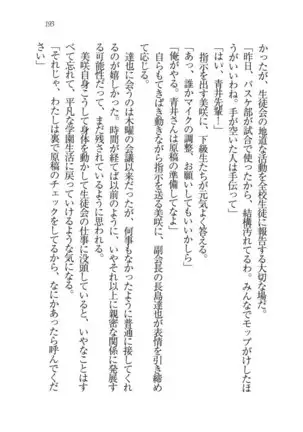 193
かったが、生徒会の地道な活動を全校生徒に報告する大切な場だ。
「昨日、バスケ部が試合で使ったから、結構汚れてるわ。みんなでモップがけしたほ
うがいいわね。手が空いた人は手伝って」
「はい、青井先輩！」
指示を出す美咲に、下級生たちが元気よく答える。
「あっ、誰かマイクの調整、お願いしてもいいかしら」
「俺がやる。青井さんは原稿の準備してなよ」
自らもてきぱき動きながら指示を送る美咲に、副会長の長島達也が表情を引き締め
て応じる。
達也に会うのは木曜の会議以来だったが、何事もなかったように普通に接してくれ
るのが嬉しかった。時間が経てば以前のように、いやそれ以上に親密な関係に発展す
る可能性だって、まだ残されているように思われる。
美咲自身こうして身体を動かして生徒会の仕事に没頭していると、いやなことはす
べて忘れて、平凡な学園生活に戻っていけるような気になる。
「それじゃ、わたしは裏で原稿のチェックをしてるから、なにかあったら呼んでくだ
さい」